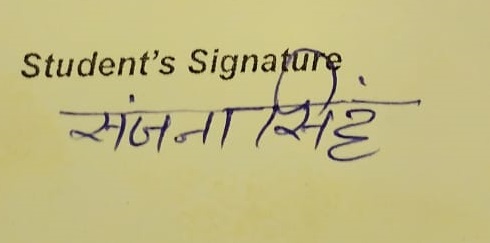 Student's Signature
संजना सिंह